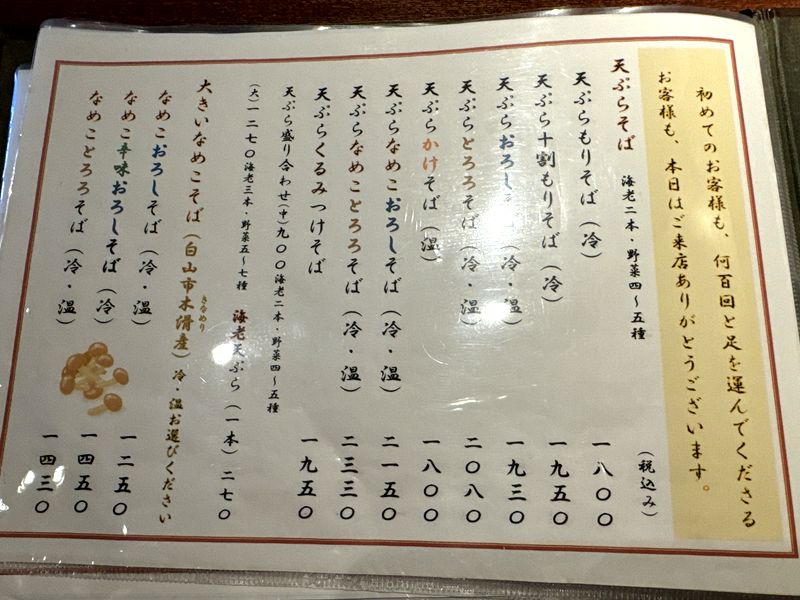 初めてのお客様も、何百回と足を運んでくださる
お客様も、本日はご来店ありがとうございます。
天ぷらそば 海老二本・野菜四～五種 (税込み)
天ぷらもりそば (冷) 一八〇〇
天ぷら十割もりそば (冷) 一九五〇
天ぷらおろしそば (冷・温) 一九三〇
天ぷらとろろそば (冷・温) 二〇八〇
天ぷらかけそば (温) 一八〇〇
天ぷらなめこおろしそば (冷・温) 二一五〇
天ぷらなめことろろそば (冷・温) 二三三〇
天ぷらくるみつけそば 一九五〇
天ぷら盛り合わせ(中)九〇〇海老二本・野菜四～五種
(大)一二七〇海老三本・野菜五～七種 海老天ぷら (一本) 二七〇
大きいなめこそば(白山市木滑産) 冷・温お選びください
きなめり
なめこおろしそば (冷・温) 一二五〇
なめこ辛味おろしそば (冷) 一四五〇
なめことろろそば (冷・温) 一四三〇